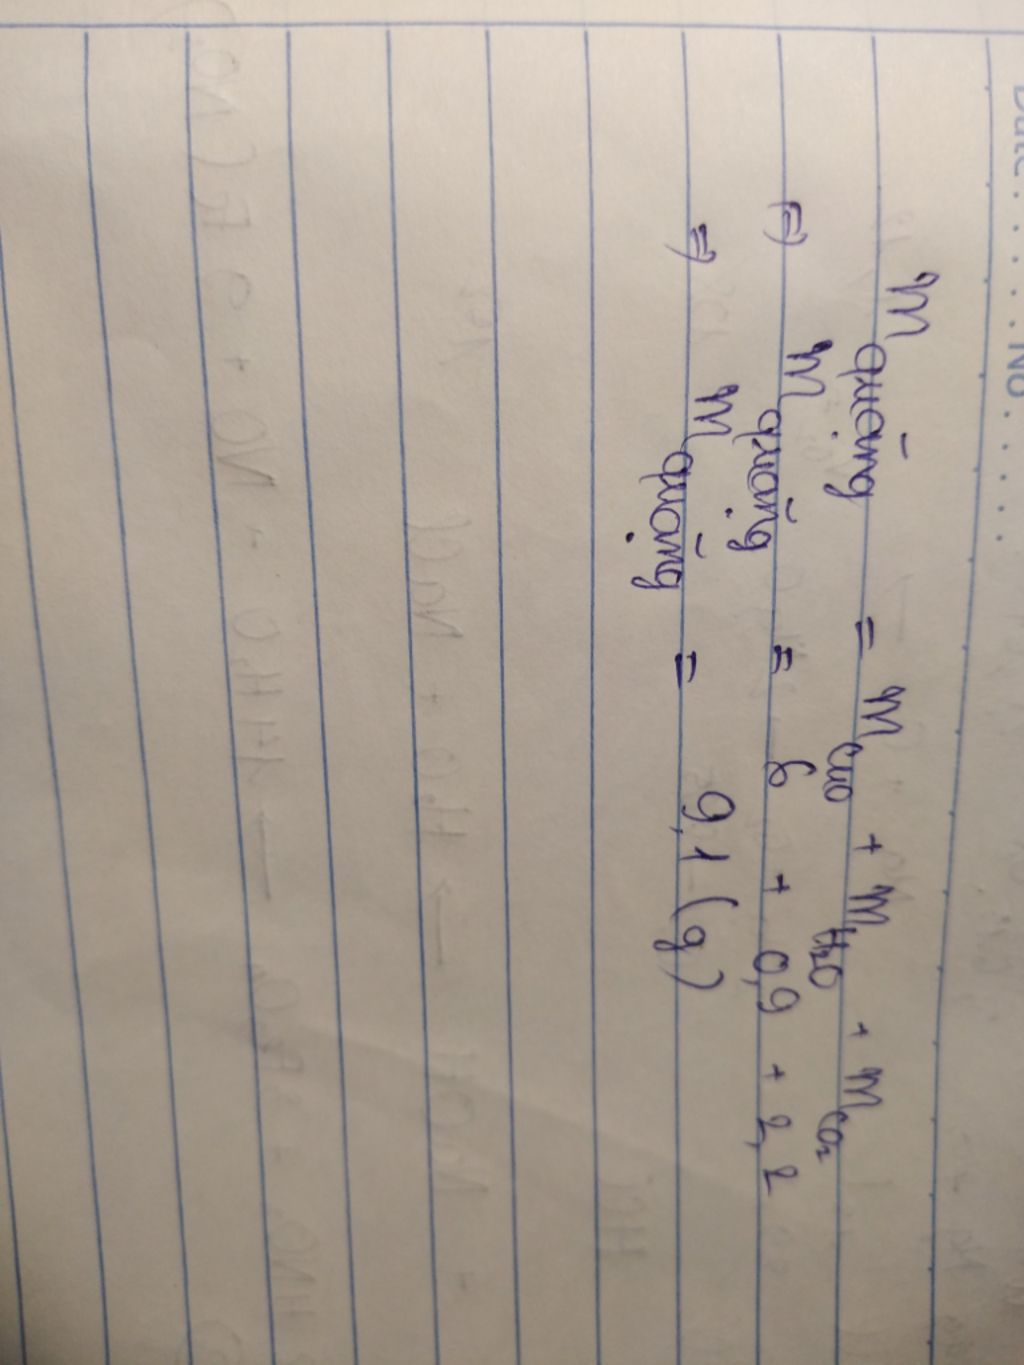 Date . . . . . . No . . . . . .
m quặng = m CuO + m H₂O + m CO₂
=) m quặng = 6 + 0,9 + 2,2
=) m quặng = 9,1 (g)